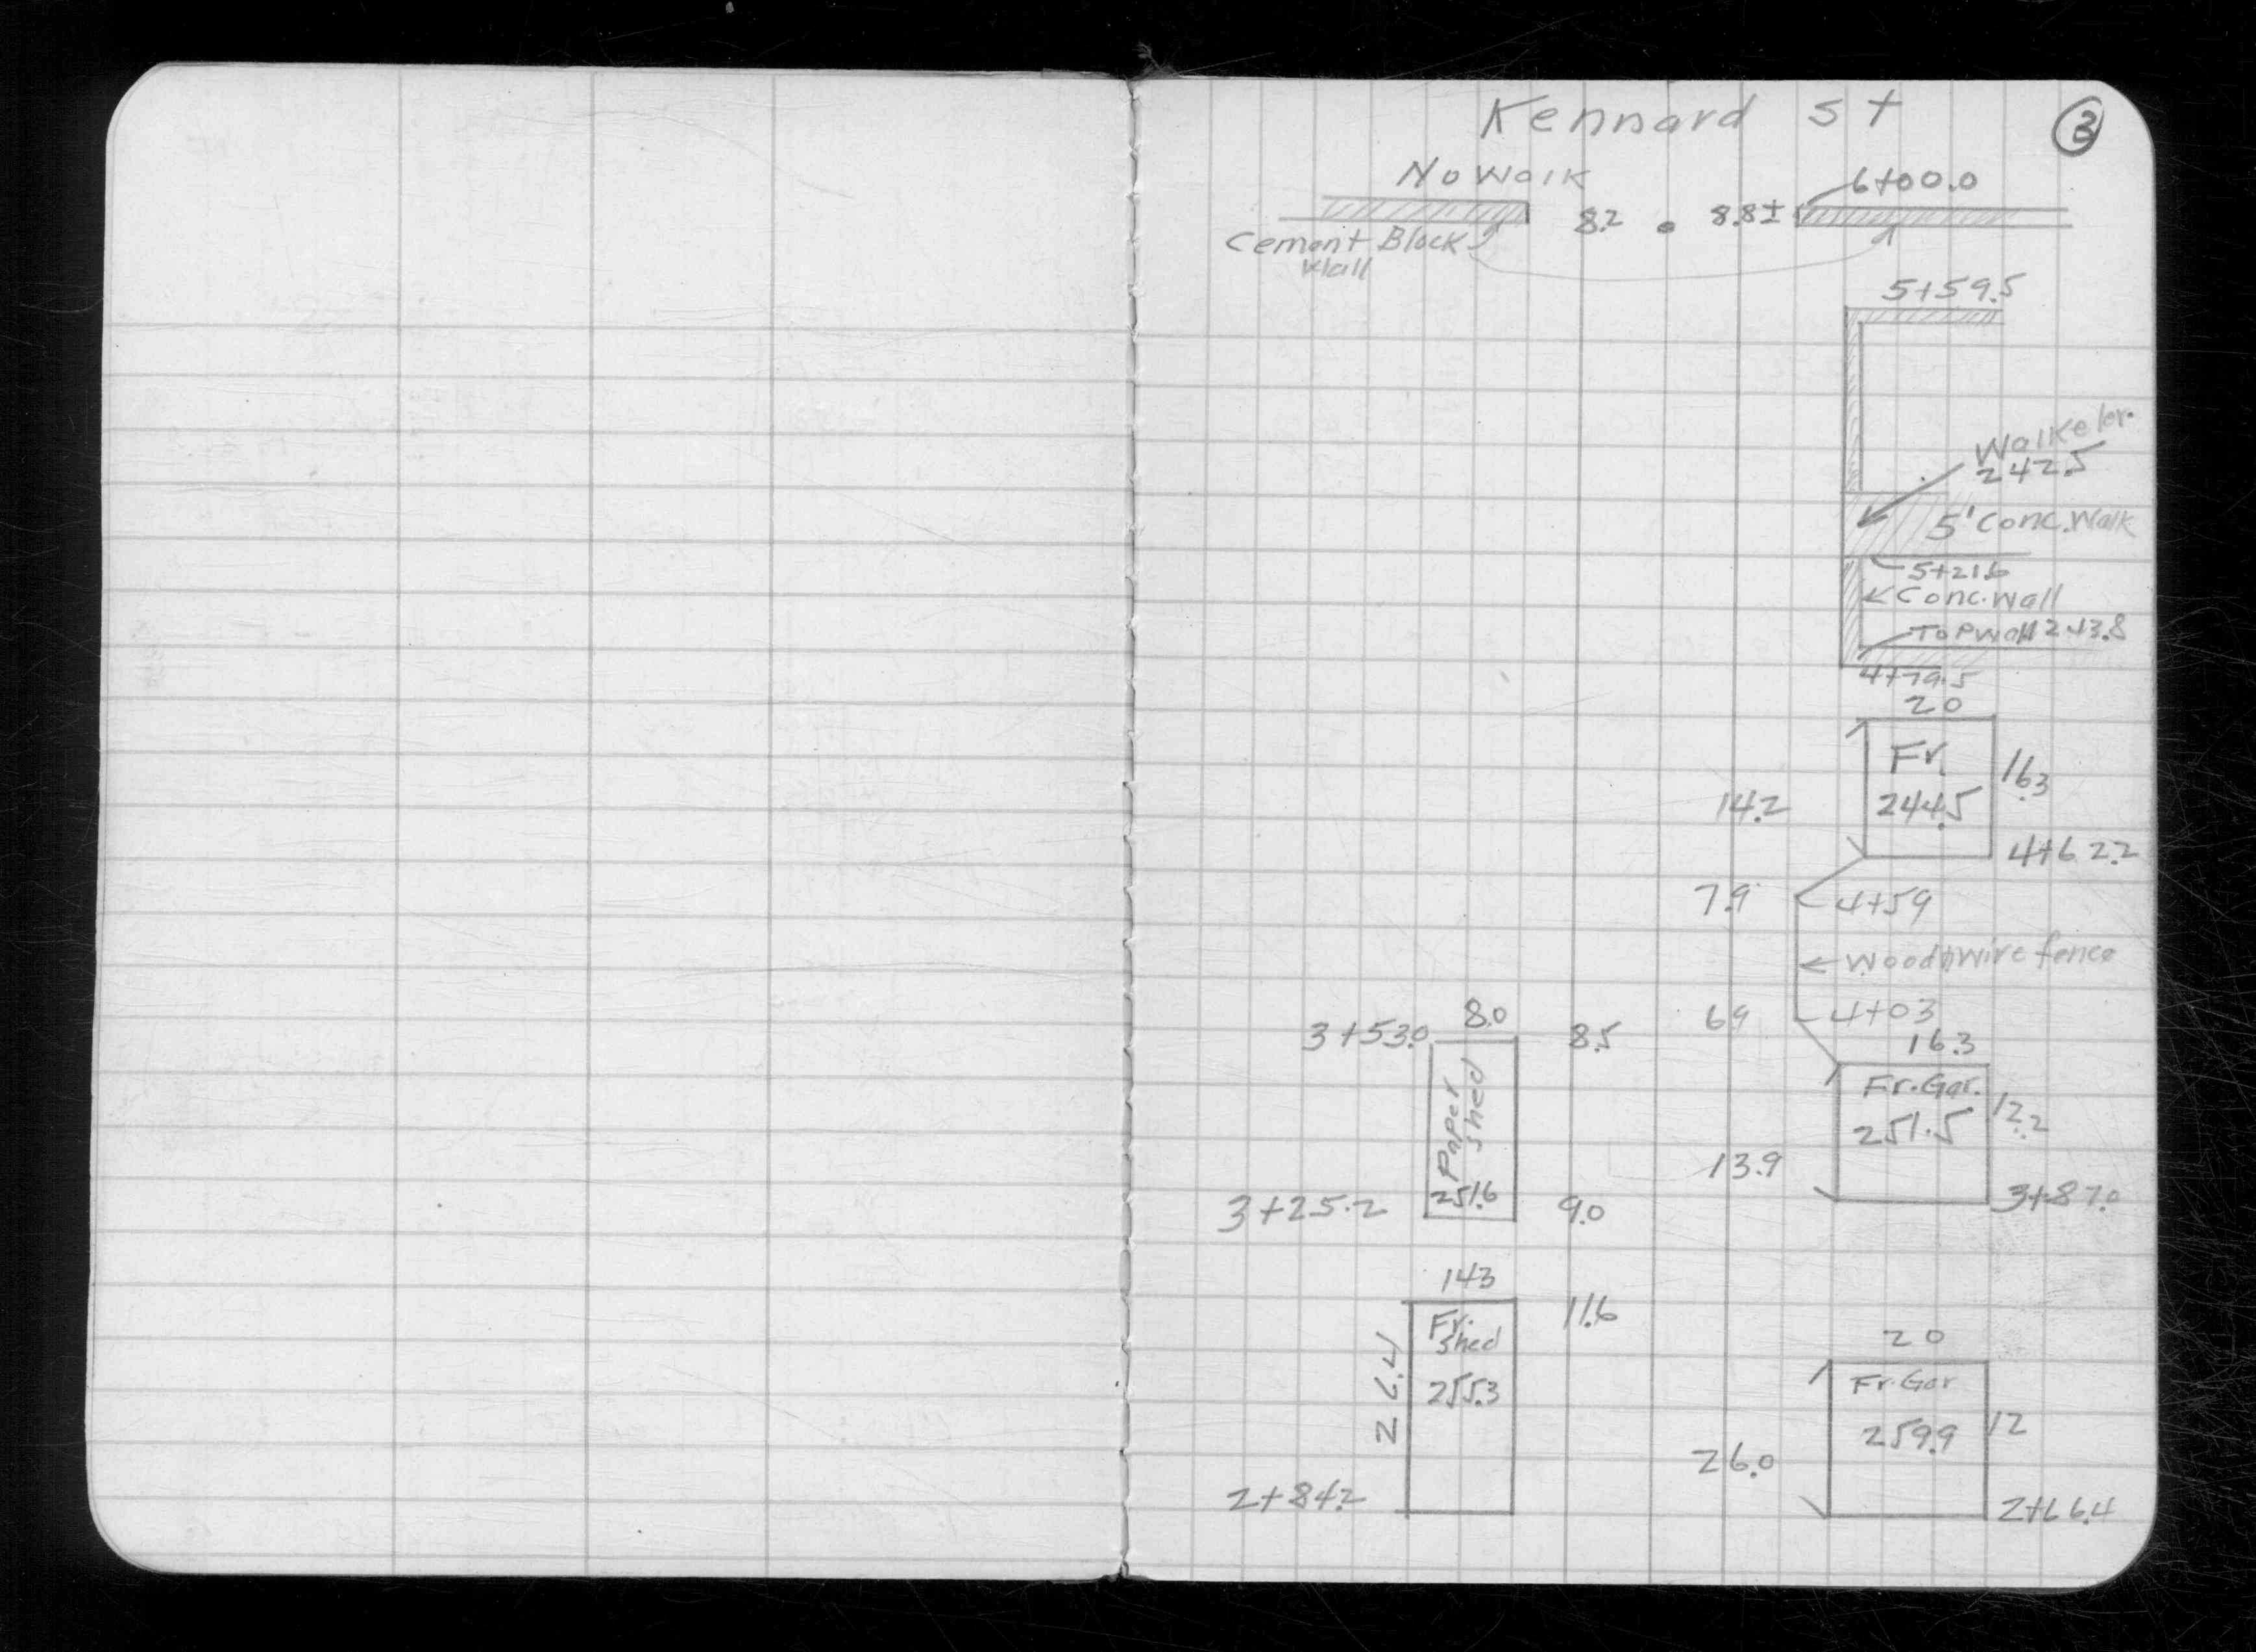 Kennard St
3
No Walk
6+00.0
8.2
8.8±
Cement Block
Wall
5+59.5
Walk elev.
242.5
5' Conc. Walk
5+21.6
Conc. wall
Top Wall 243.8
4+79.5
20
Fr.
244.5
16.3
14.2
4+62.2
7.9
4+59
Wood & wire fence
6.9
4+03
16.3
3+53.0
8.0
8.5
Fr. Gar.
251.5
12.2
Paper
Shed
251.6
13.9
3+87.0
3+25.2
9.0
14.3
11.6
Fr.
Shed
255.3
26.4
20
Fr. Gar
259.9
12
26.0
2+84.2
2+66.4